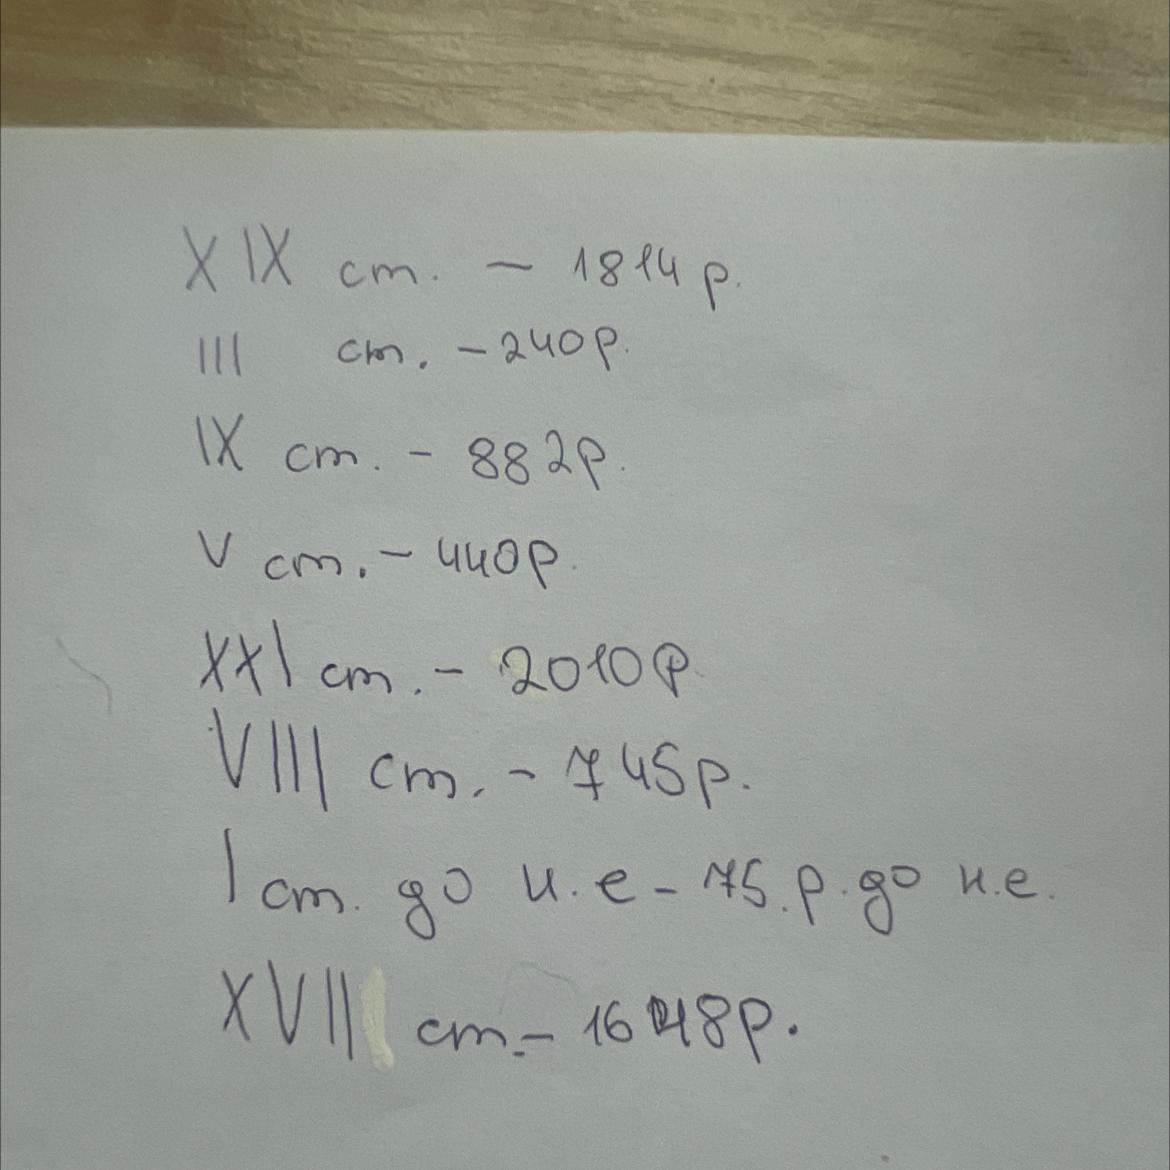 XIX ст. – 1814 р.
III ст. – 240 р.
IX ст. – 882 р.
V ст. – 440 р.
XXI ст. – 2010 р.
VIII ст. – 745 р.
I ст. до н.е – 75. р. до н.е.
XVII ст. – 1648 р.